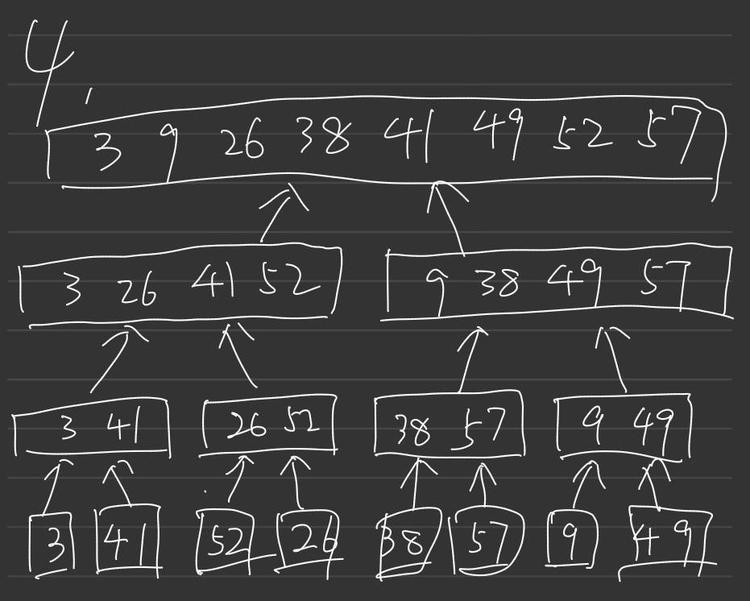 4.
3 9 26 38 41 49 52 57
3 26 41 52 9 38 49 57
3 41 26 52 38 57 9 49
3 41 52 26 38 57 9 49